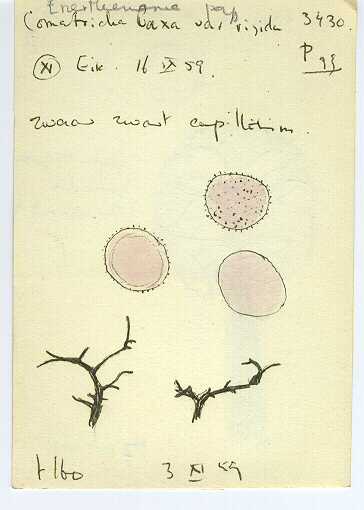 Enerthenema pap
Comatricha laxa var rigida 3430.
P 93
(XI) Eik. 16 IX 59.
zwaar zwart capillitium.
t 160 3 XI 59